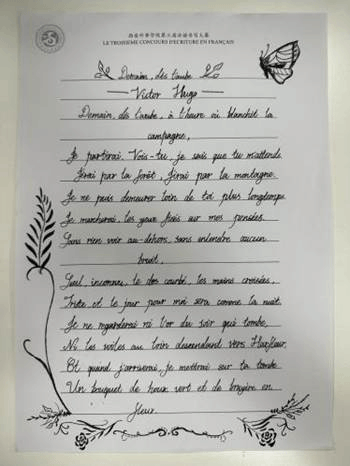 LE TROISIÈME CONCOURS D'ÉCRITURE EN FRANÇAIS
Demain, dès l'aube
Victor Hugo
Demain, dès l'aube, à l'heure où blanchit la
campagne,
Je partirai. Vois-tu, je sais que tu m'attends.
J'irai par la forêt, j'irai par la montagne.
Je ne puis demeurer loin de toi plus longtemps.
Je marcherai, les yeux fixés sur mes pensées,
Sans rien voir au-dehors, sans entendre aucun
bruit,
Seul, inconnu, le dos courbé, les mains croisées,
Triste et le jour pour moi sera comme la nuit.
Je ne regarderai ni l'or du soir qui tombe,
Ni les voiles au loin descendant vers Harfleur.
Et quand j'arriverai, je mettrai sur ta tombe
Un bouquet de houx vert et de bruyère en
fleur.